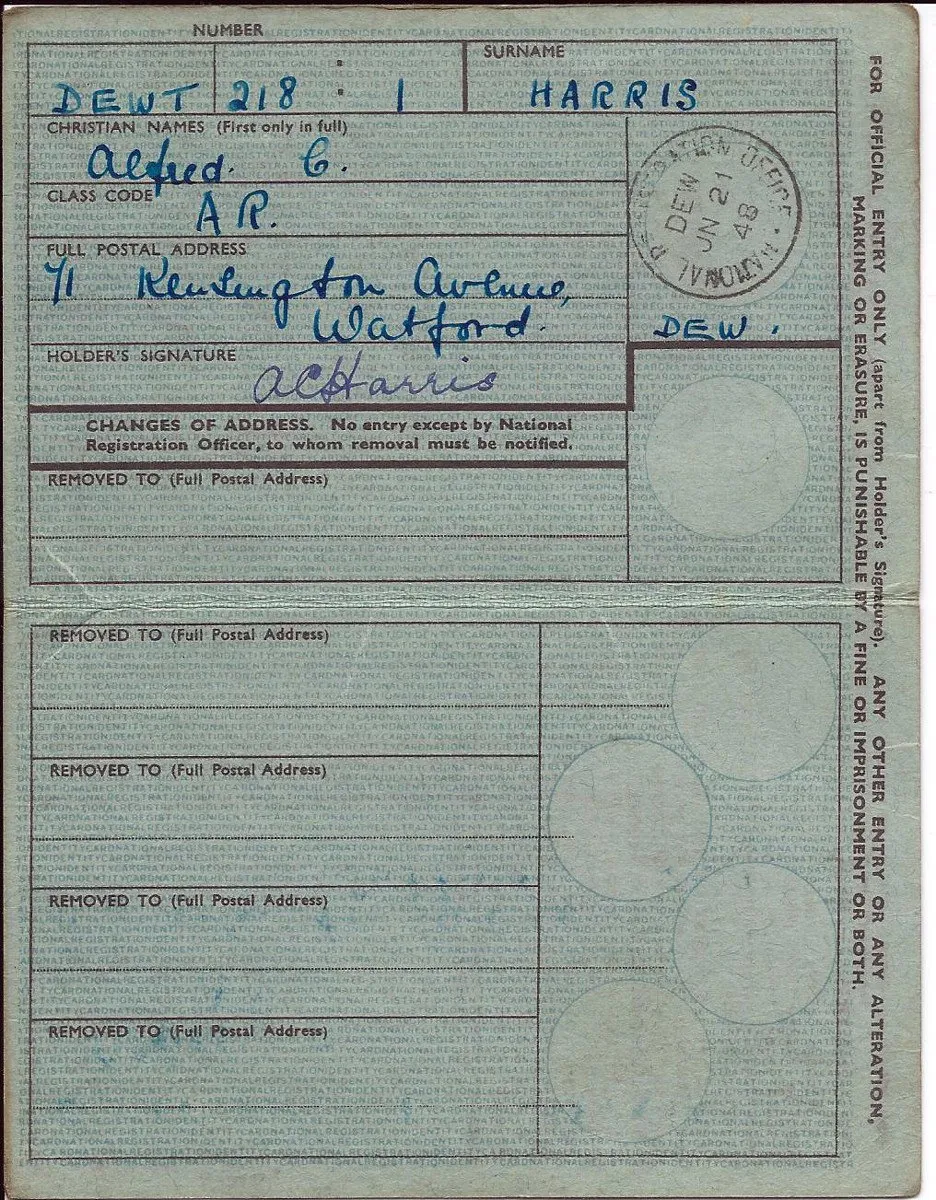 NUMBER
SURNAME
DEWT 218 : 1
HARRIS
CHRISTIAN NAMES (First only in full)
Alfred. C.
CLASS CODE
A R.
FULL POSTAL ADDRESS
71 Kensington Avenue,
Watford.
NATIONAL REGISTRATION OFFICE
DEW
JN 21
48
DEW.
HOLDER'S SIGNATURE
ACHarris
CHANGES OF ADDRESS. No entry except by National
Registration Officer, to whom removal must be notified.
REMOVED TO (Full Postal Address)
REMOVED TO (Full Postal Address)
REMOVED TO (Full Postal Address)
REMOVED TO (Full Postal Address)
REMOVED TO (Full Postal Address)
FOR OFFICIAL ENTRY ONLY (apart from Holder's Signature). ANY OTHER ENTRY OR ANY ALTERATION,
MARKING OR ERASURE, IS PUNISHABLE BY A FINE OR IMPRISONMENT OR BOTH.